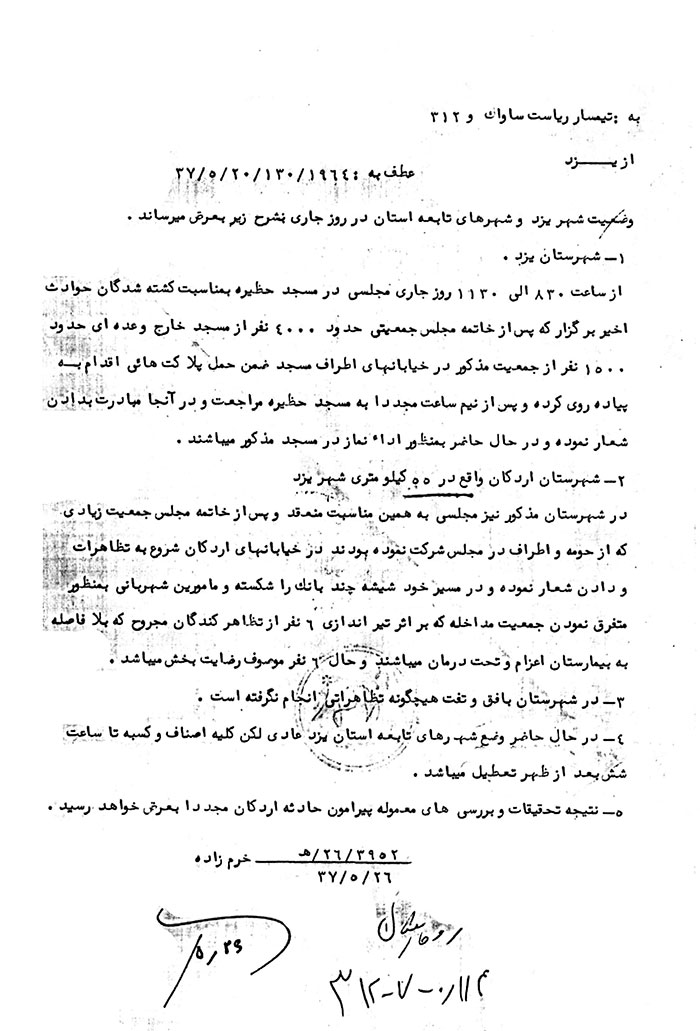 به : تیمسار ریاست ساواك و ۳۱۲
از یــــزد
عطف به : ۳۷/۵/۲۰/۱۳۰/۱۹٦٤
وضعیت شهر یزد و شهرهای تابعه استان در روز جاری بشرح زیر بعرض میرساند .
۱— شهرستان یزد .
از ساعت ۸۳۰ الی ۱۱۳۰ روز جاری مجلسی در مسجد حظیره بمناسبت کشته شدگان حوادث
اخیر برگزار که پس از خاتمه مجلس جمعیتی حدود ٤۰۰۰ نفر از مسجد خارج وعده ای حدود
۱۵۰۰ نفر از جمعیت مذکور در خیابانهای اطراف مسجد ضمن حمل پلاکت هائی اقدام بــه
پیاده روی کرده و پس از نیم ساعت مجددا به مسجد حظیره مراجعت و در آنجا مبادرت بدادن
شعار نموده و در حال حاضر بمنظور اداء نماز در مسجد مذکور میباشند .
۲— شهرستان اردکان واقع در ۵۵ کیلو متری شهر یزد
در شهرستان مذکور نیز مجلسی به همین مناسبت منعقد و پس از خاتمه مجلس جمعیت زیادی
که از حومه و اطراف در مجلس شرکت نموده بودند در خیابانهای اردکان شروع به تظاهرات
و دادن شعار نموده و در مسیر خود شیشه چند بانك را شکسته و مامورین شهربانی بمنظور
متفرق نمودن جمعیت مداخله که بر اثر تیر اندازی ٦ نفر از تظاهر کندگان مجروح که بلا فاصله
به بیمارستان اعزام و تحت درمان میباشند و حال ٦ نفر موصوف رضایت بخش میباشد .
۳— در شهرستان بافق و تفت هیچگونه تظاهراتی انجام نگرفته است .
٤— در حال حاضر وضع شهرهای تابعه استان یزد عادی لکن کلیه اصناف و کسبه تا ساعت
شش بعد از ظهر تعطیل میباشد .
۵— نتیجه تحقیقات و بررسی های معموله پیرامون حادثه اردکان مجددا بعرض خواهد رسید .
۳۹۵۲/۲٦/هـ خرم زاده
۳۷/۵/۲٦
۵٫۲۹